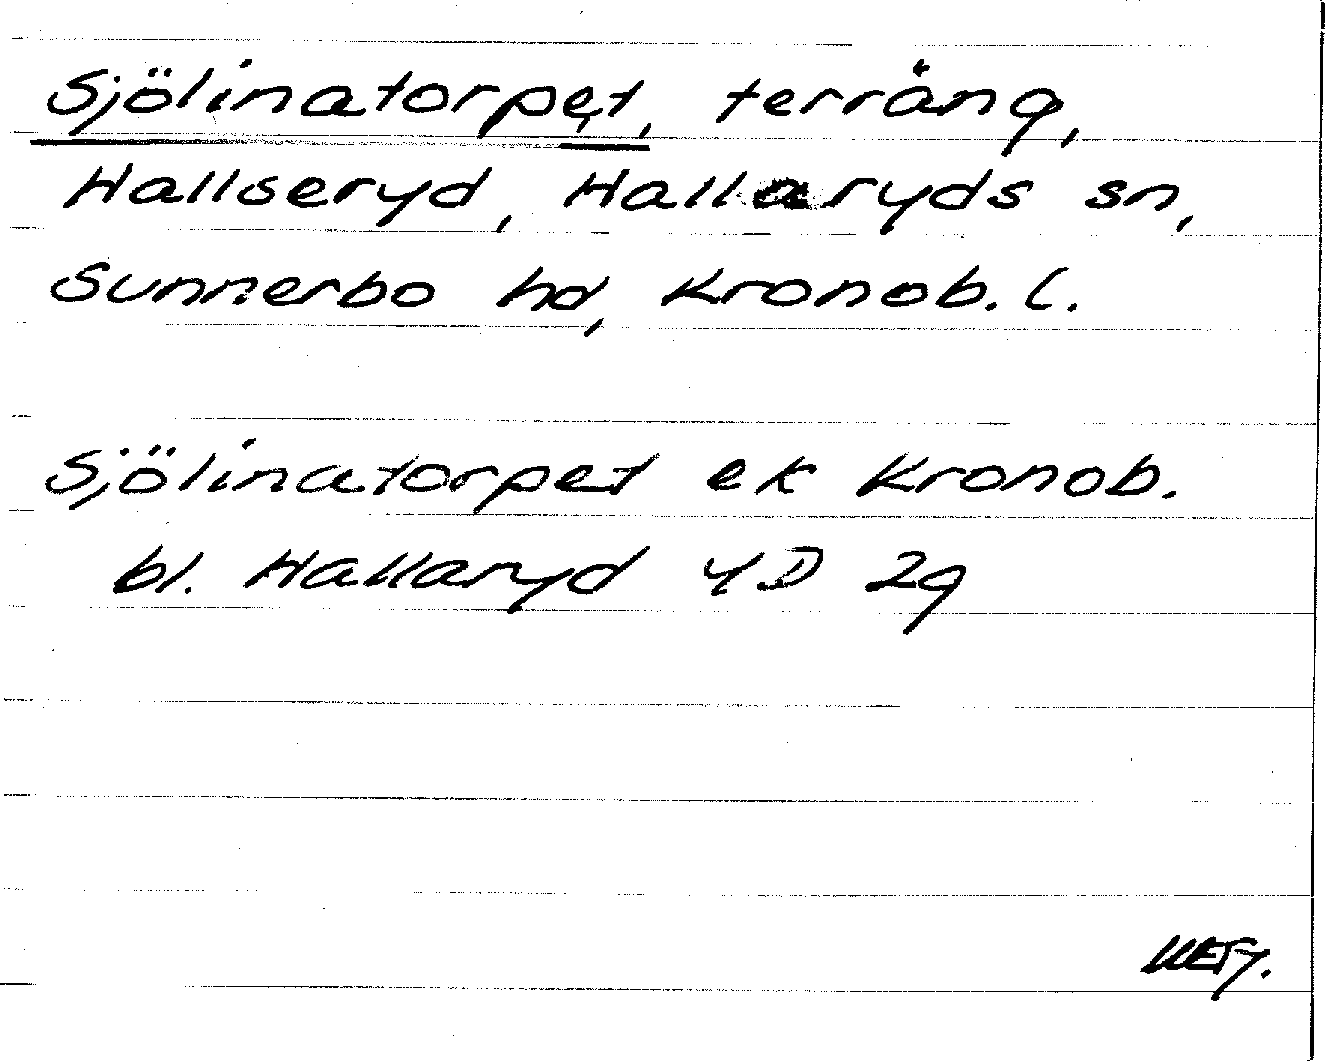 Sjölinatorpet, terräng,
Hallseryd, Hallaryds sn,
Sunnerbo hd, Kronob. l.
Sjölinatorpet ek Kronob.
bl. Hallaryd 4D 2g